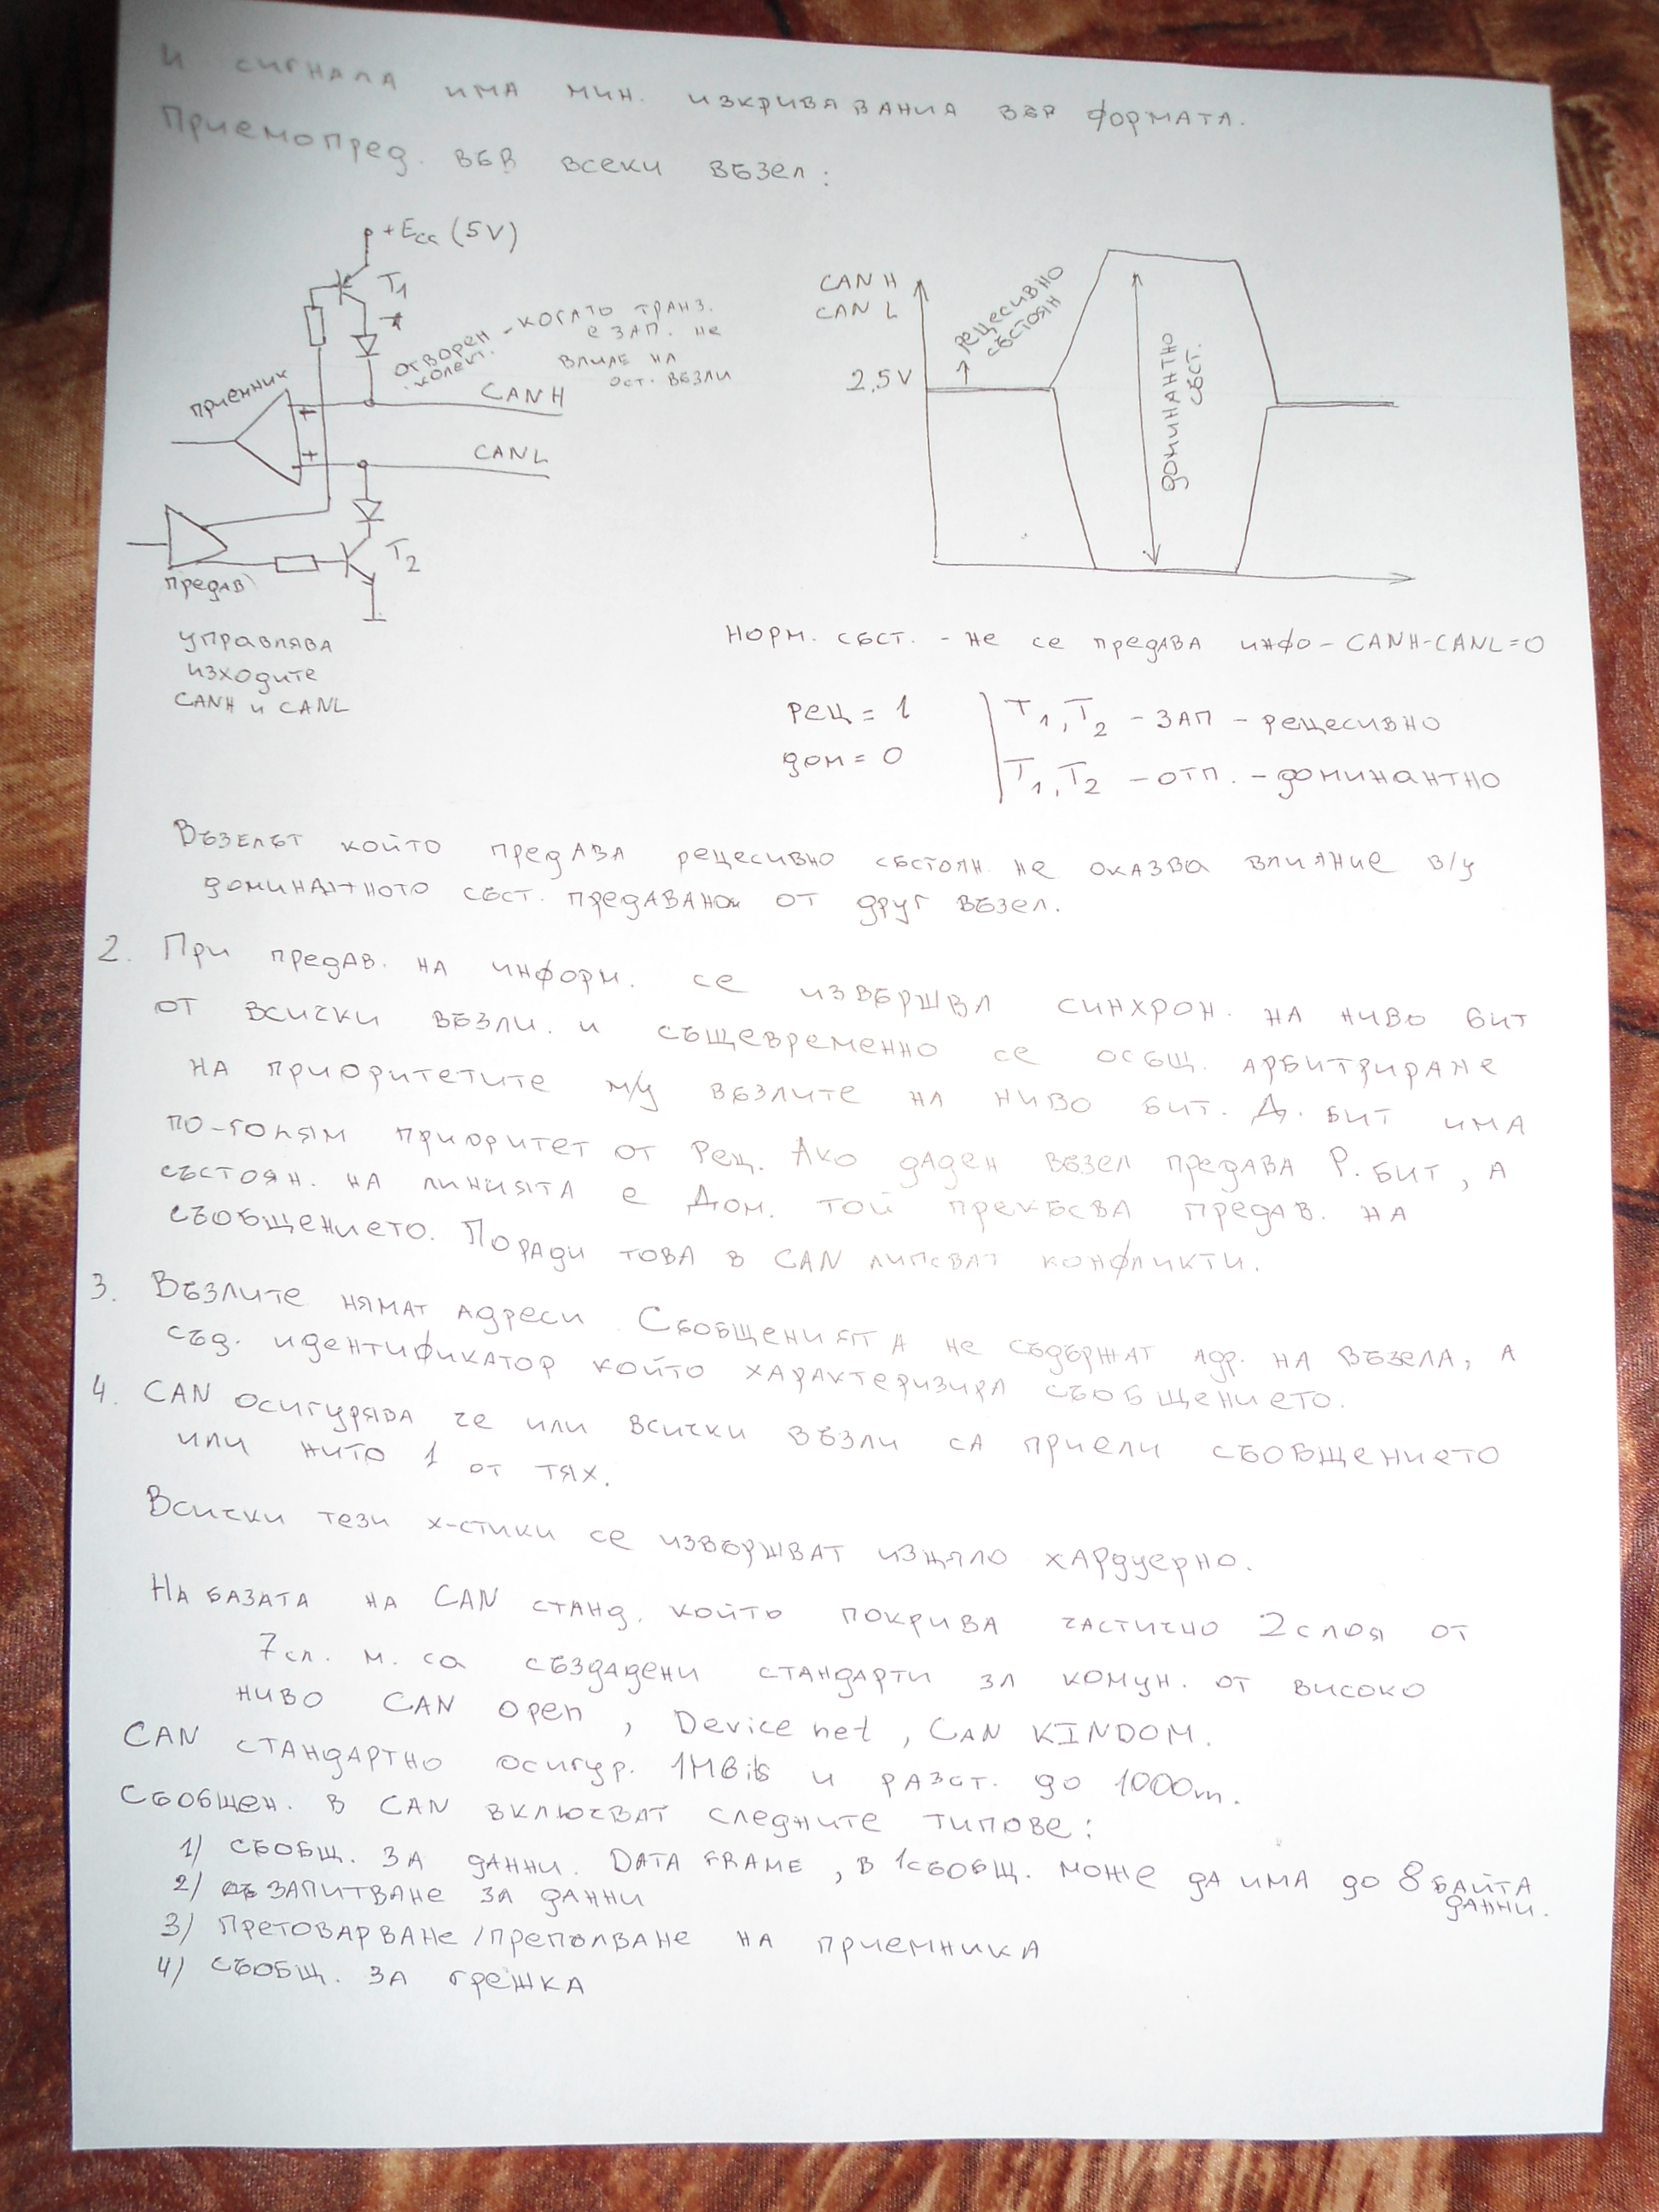 и сигнала има мин. изкривявания във формата.
Приемопред. във всеки възел:
+Ecc (5V)
T1
отворен колект. - когато транз. е зап. не влияе на ост. възли
приемник
+
CANH
+
CANL
T2
предав
управлява
изходите
CANH и CANL
CAN H
CAN L
рецесивно
състоян
2,5V
доминантно
съст.
норм. съст. - не се предава инфо - CANH-CANL=0
рец = 1
дом = 0
T1, T2 - зап - рецесивно
T1, T2 - отп. - доминантно
Възелът който предава рецесивно състоян. не оказва влияние в/у
доминантното съст. предавано от друг възел.
2. При предав. на информ. се извършва синхрон. на ниво бит
от всички възли. и същевременно се осъщ. арбитриране
на приоритетите м/у възлите на ниво бит. Д. бит има
по-голям приоритет от Рец. Ако даден възел предава Р. бит, а
състоян. на линията е Дом. той прекъсва предав. на
съобщението. Поради това в CAN липсват конфликти.
3. Възлите нямат адреси. Съобщенията не съдържат адр. на възела, а
съд. идентификатор който характеризира съобщението.
4. CAN осигурява че или всички възли са приели съобщението
или нито 1 от тях.
Всички тези х-стики се извършват изцяло хардуерно.
На базата на CAN станд. който покрива частично 2 слоя от
7 сл. м. са създадени стандарти за комун. от високо
ниво CAN open, Device net, CAN KINDOM.
CAN стандартно осигур. 1MBits и разст. до 1000m.
Съобщен. в CAN включват следните типове:
1) съобщ. за данни. DATA FRAME, в 1 съобщ. може да има до 8 байта
данни.
2) запитване за данни
3) Претоварване/препълване на приемника
4) съобщ. за грешка